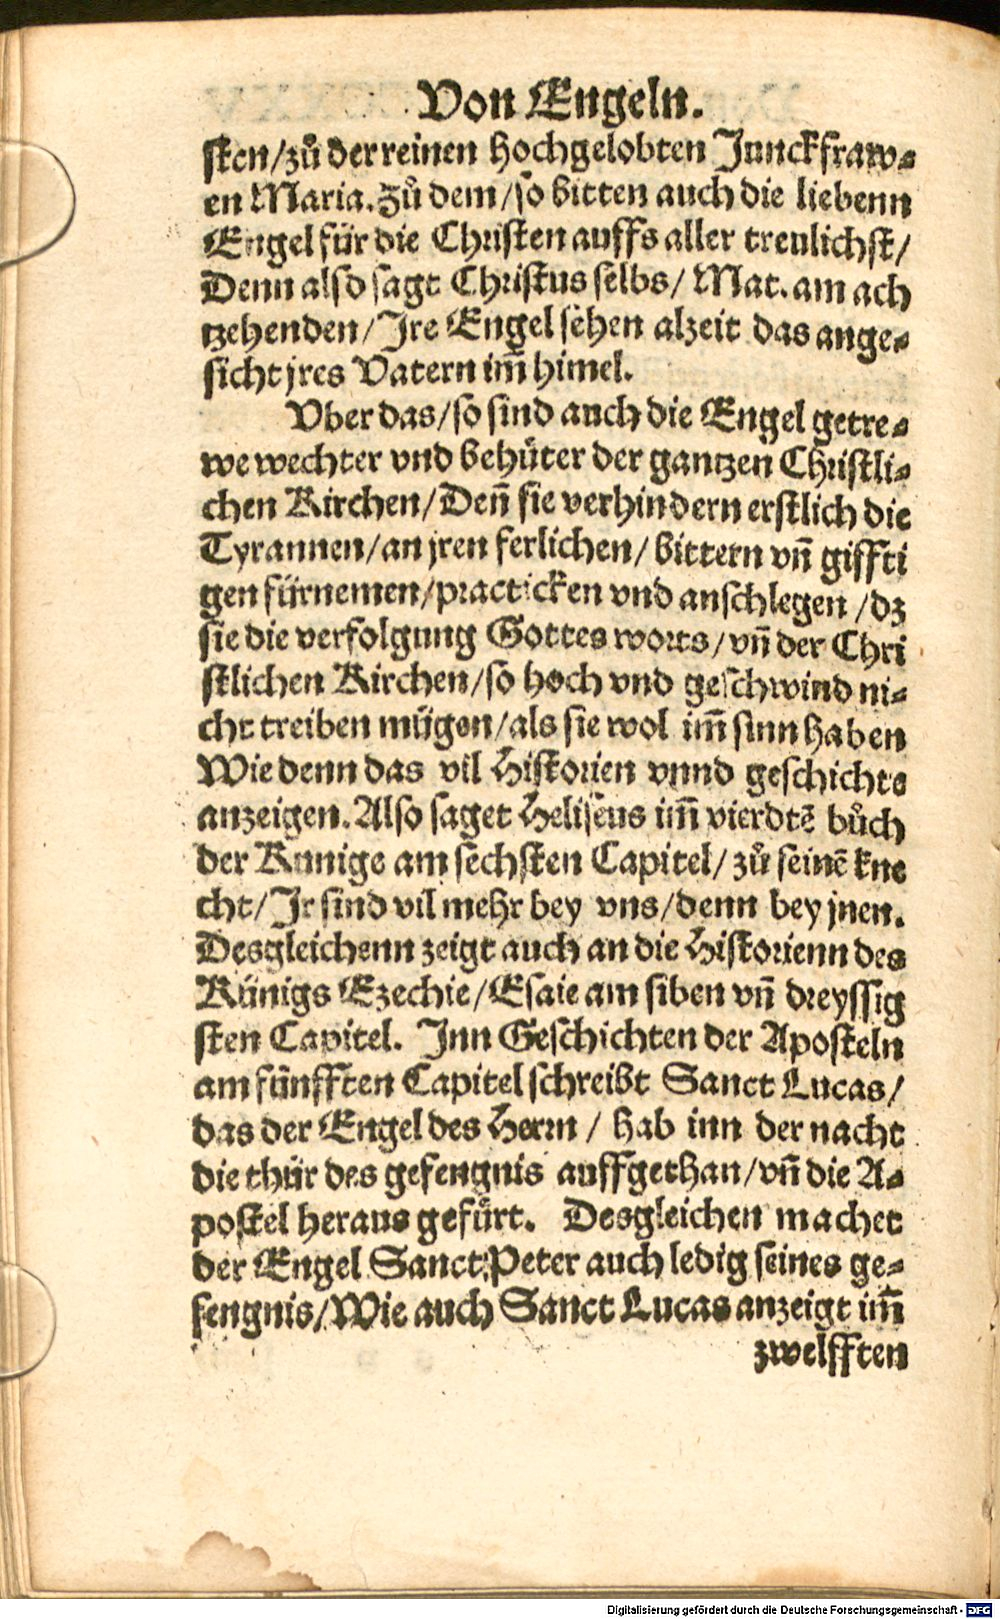 Von Engeln.
sten/zů der reinen hochgelobten Junckfraw-
en Maria. Zů dem/so bitten auch die liebenn
Engel für die Christen auffs aller treulichst/
Denn also sagt Christus selbs/ Mat. am ach
tzehenden/Jre Engel sehen alzeit das ange-
sicht jres Vatern im̃ himel.
Vber das/so sind auch die Engel getre-
we wechter vnd behüter der gantzen Christli-
chen Kirchen/Deñ sie verhindern erstlich die
Tyrannen/an jren ferlichen/bittern vñ giffti
gen fürnemen/practicken vnd anschlegen /dz
sie die verfolgung Gottes worts/vñ der Chri
stlichen Kirchen/so hoch vnd geschwind ni-
cht treiben mügen/als sie wol im̃ sinn haben
Wie denn das vil Historien vnnd geschichte
anzeigen. Also saget Heliseus im̃ vierdtẽ bůch
der Kunige am sechsten Capitel/zů seinẽ kne
cht/Jr sind vil mehr bey vns/denn bey jnen.
Desgleichenn zeigt auch an die Historienn des
Künigs Ezechie/Esaie am siben vñ dreyssig
sten Capitel. Jnn Geschichten der Aposteln
am fünfften Capitel schreibt Sanct Lucas/
das der Engel des Herrn / hab inn der nacht
die thür des gefengnis auffgethan/vñ die A-
postel heraus gefürt. Desgleichen machet
der Engel Sanct Peter auch ledig seines ge-
fengnis/Wie auch Sanct Lucas anzeigt im̃
zwelfften
Digitalisierung gefördert durch die Deutsche Forschungsgemeinschaft - DFG